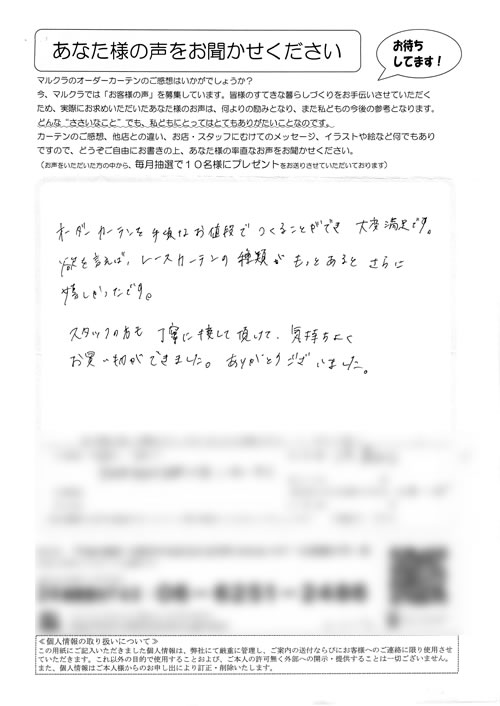 あなた様の声をお聞かせください
お待ち
してます!
マルクラのオーダーカーテンのご感想はいかがでしょうか?
今、マルクラでは「お客様の声」を募集しています。皆様のすてきな暮らしづくりをお手伝いさせていただく
ため、実際にお求めいただいたあなた様のお声は、何よりの励みとなり、また私どもの今後の参考となります。
どんな“ささいなこと”でも、私どもにとってはとてもありがたいことなのです。
カーテンのご感想、他店との違い、お店・スタッフにむけてのメッセージ、イラストや絵など何でもあり
ですので、どうぞご自由にお書きの上、あなた様の率直なお声をお聞かせください。
(お声をいただいた方の中から、毎月抽選で10名様にプレゼントをお送りさせていただいております)
オーダーカーテンを手頃なお値段でつくることができ 大変満足です。
欲を言えば、レースカーテンの種類がもっとあるとさらに
嬉しかったです。
スタッフの方も 丁寧に接して頂けて、気持ちよく
お買い物ができました。ありがとうございました。
06-6251-2486
≪個人情報の取り扱いについて≫
この用紙にご記入いただきました個人情報は、弊社にて厳重に管理し、ご案内の送付ならびにお客様へのご連絡に限り使用させ
ていただきます。これ以外の目的で使用することおよび、ご本人の許可無く外部への開示・提供することは一切ございません。
また、個人情報はご本人様からのお申し出により訂正・削除いたします。